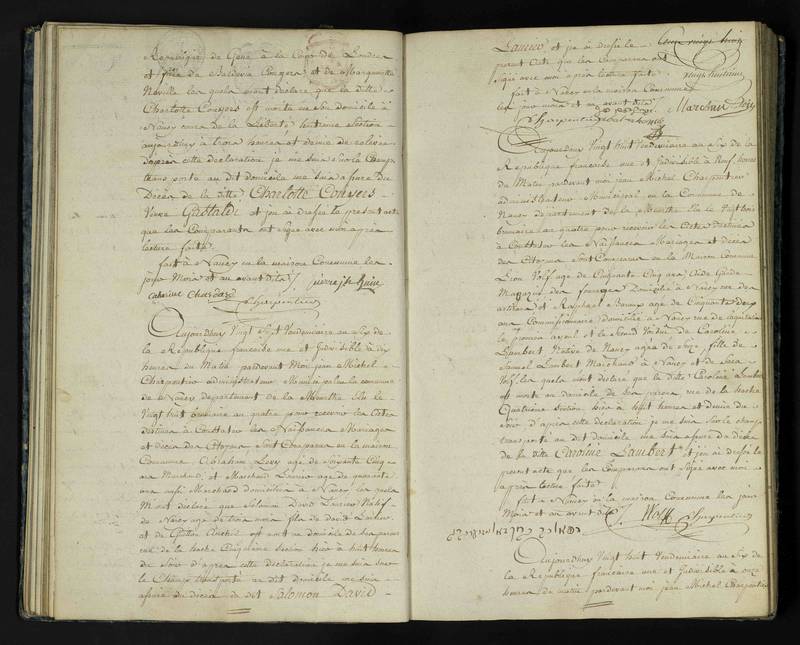 Republique de Gene à la Cour de Londre
et fille de Balderia Conyers et de Marguerite
Neville les quels mont declaré que la ditte
Charlotte Conyers est morte en son domicile à
Nancy rue de la Liberté huitieme Section
aujourdhuy à trois heures et demie de relevée
Dapres cette declaration je me suis sur le Champ
transporté au dit domicile me suis assuré du
Décès de la ditte Charlotte Conyers
Veuve Gastaldi et j'en ai dressé le present acte
que les Comparants ont signé avec moi apres
lecture faite
fait à Nancy en la maison Commune les
jour Mois et an avant dits pierre
Charpentier
Aujourdhuy Vingt Sept Vendemiaire an Six de
la Republique francaise une et Indivisible à dix
heures du Matin pardevant Moi jean Michel
Charpentier administrateur Municipal en la commune
de Nancy departement de la Meurthe Elu le
Vingt huit brumaire an quatre pour recevoir les Actes
destinés à Constater les Naissances Mariages
et décès des Citoyens Sont Comparus en la maison
Commune Abraham Levy agé de Soixante Cinq
ans Marchand et Marchand Lanier agé de quarante
ans aussi Marchand domiciliés à Nancy les quels
M'ont déclaré que Salomon David Lanier Natif
de Nancy agé de trois mois fils de David Lanier
et de est mort au domicile de ses pere
rue de la hache Cinquieme Section hier à huit heures
du Soir d'apres cette declaration je me suis sur
le Champ transporté au dit domicile me suis
assuré du décès du dit Salomon David
Lanier et j'en ai dressé le
present Acte que les Comparans ont
signé avec moi apres lecture faite
fait à Nancy en la maison Commune
les jour mois et an avant dits Marchand
Charpentier
Aujourdhuy Vingt huit Vendemiaire an Six de la
Republique francaise une et Indivisible à Neuf heures
du Matin pardevant moi jean Michel Charpentier
administrateur Municipal en la Commune de
Nancy departement de la Meurthe Elu le Vingt huit
brumaire an quatre pour recevoir les Actes destinés
à Constater les Naissances Mariages et décès
des Citoyens Sont Comparus en la Maison Commune
Lion Wolf agé de Cinquante Cinq ans Garde
Magazin des fourages domicilié à Nancy rue des
artisans et Raphael agé de Cinquante deux
ans Commissionaire domicilié à Nancy rue de
le premier ayeul et le Second Voisin de Caroline
Lambert Native de Nancy agée de fille de
Samuel Lambert Marchand à Nancy et de Sara
Wolf les quels mont declaré que la ditte Caroline Lambert
est morte au domicile de ses parens rue de la hache
Quatrieme Section hier à Sept heures et demie du
Soir d'apres cette declaration je me suis sur le champ
transporté au dit domicile me suis assuré du décès
de la ditte Caroline Lambert et j'en ai dressé le
present acte que les Comparans ont signé avec moi
apres lecture faite
fait à Nancy en la maison Commune les jour
Mois et an avant dits Wolff Charpentier
Aujourdhuy Vingt huit Vendemiaire an Six de
la Republique francaise une et Indivisible à onze
heures du matin pardevant moi jean Michel Charpentier